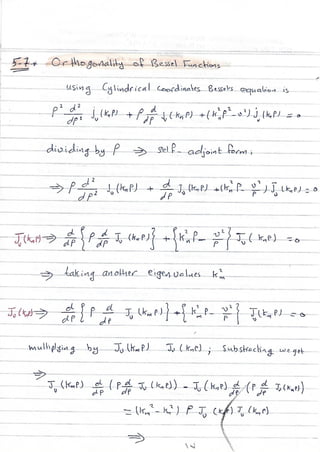 5.7. Orthogonality of Bessel Functions
using Cylindrical Coordinates Bessel's equation is
ρ² d²/dρ² J_ν(k_nρ) + ρ d/dρ J_ν(k_nρ) + (k_n²ρ² - ν²) J_ν(k_nρ) = 0
dividing by ρ ⇒ self-adjoint form,
⇒ ρ d²/dρ² J_ν(k_nρ) + d/dρ J_ν(k_nρ) + (k_n²ρ - ν²/ρ) J_ν(k_nρ) = 0
J_ν(k_mρ) ⇒ d/dρ {ρ d/dρ J_ν(k_nρ)} + {k_n²ρ - ν²/ρ} J_ν(k_nρ) = 0
⇒ taking another eigen values k_m²
J_ν(k_nρ) ⇒ d/dρ {ρ d/dρ J_ν(k_mρ)} + {k_m²ρ - ν²/ρ} J_ν(k_mρ) = 0
multiplying by J_ν(k_mρ) J_ν(k_nρ) ; Substracting we get
⇒ J_ν(k_mρ) d/dρ (ρ d/dρ J_ν(k_nρ)) - J_ν(k_nρ) d/dρ (ρ d/dρ J_ν(k_mρ))
= (k_m² - k_n²) ρ J_ν(k_mρ) J_ν(k_nρ)
⇒